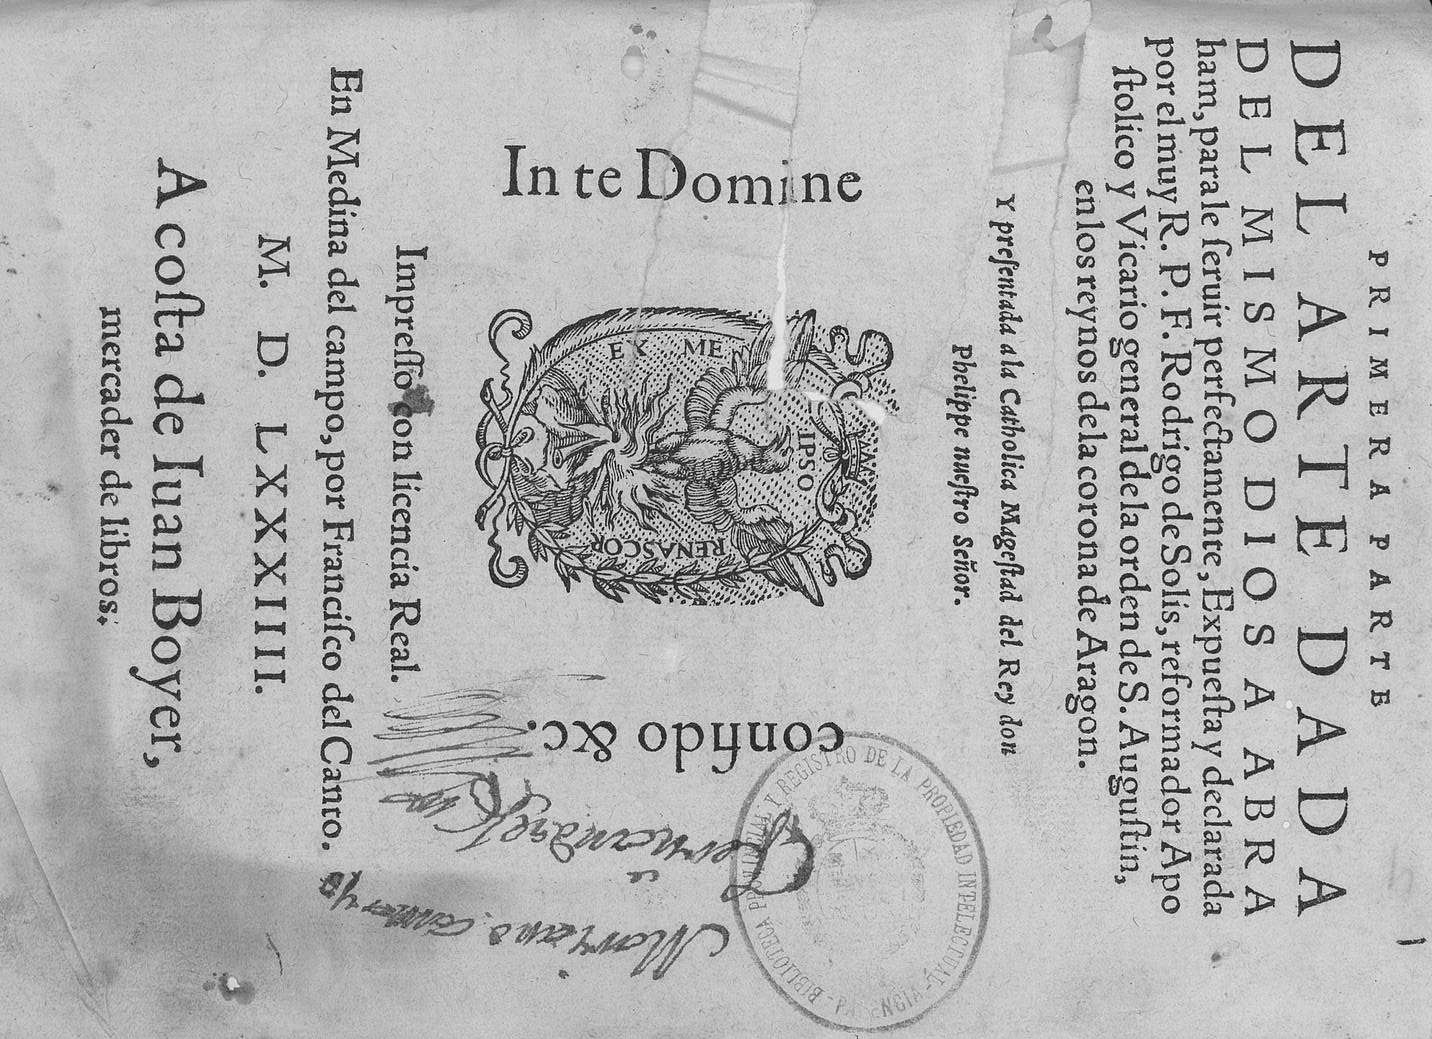 PRIMERA PARTE
DEL ARTE DADA
DEL MISMO DIOS A ABRA
ham, para le ſeruir perfectamente, Expueſta y declarada
por el muy R. P. F. Rodrigo de Solis, reformador Apo
ſtolico y Vicario general de la orden de S. Auguſtin,
en los reynos de la corona de Aragon.
Y preſentada a la Catholica Mageſtad del Rey don
Phelippe nueſtro Señor.
In te Domine
EX ME
IPSO
RENASCOR
confido &c.
BIBLIOTECA PROVINCIAL Y REGISTRO DE LA PROPIEDAD INTELECTUAL - PALENCIA -
Mariano
Impreſſo con licencia Real.
En Medina del campo, por Franciſco del Canto.
M. D. LXXXIIII.
A coſta de Iuan Boyer,
mercader de libros.